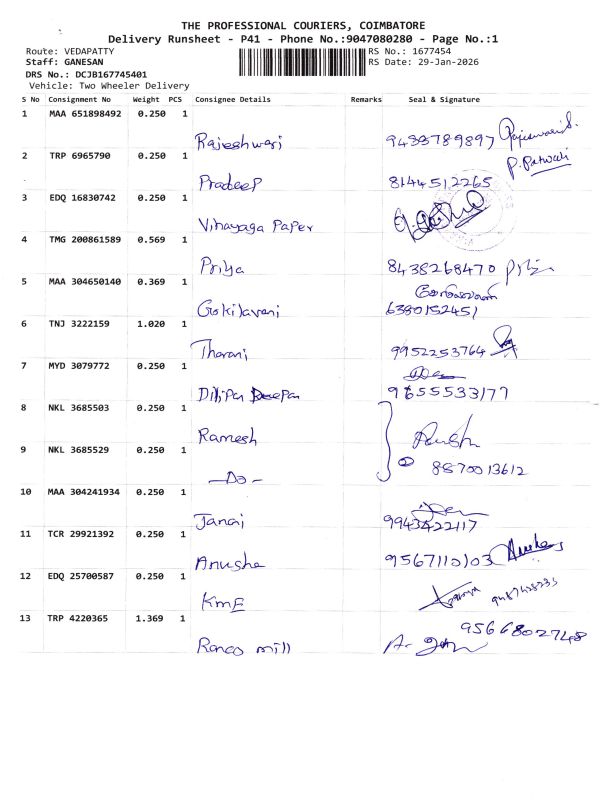 THE PROFESSIONAL COURIERS, COIMBATORE
Delivery Runsheet - P41 - Phone No.:9047080280 - Page No.:1
Route: VEDAPATTY RS No.: 1677454
Staff: GANESAN RS Date: 29-Jan-2026
DRS No.: DCJB167745401
Vehicle: Two Wheeler Delivery
S No Consignment No Weight PCS Consignee Details Remarks Seal & Signature
1 MAA 651898492 0.250 1
Rajeshwari 9433789897
2 TRP 6965790 0.250 1
Pradeep 8144512265
3 EDQ 16830742 0.250 1
Vinayaga Paper
4 TMG 200861589 0.569 1
Priya 8438268470
5 MAA 304650140 0.369 1
Gokilavani 6380152451
6 TNJ 3222159 1.020 1
Tharani 9952253764
7 MYD 3079772 0.250 1
Dilipan 9855533177
8 NKL 3685503 0.250 1
Ramesh
9 NKL 3685529 0.250 1
-Do- 8870013612
10 MAA 304241934 0.250 1
Janaj 9943422117
11 TCR 29921392 0.250 1
Anusha 9567110103
12 EDQ 25700587 0.250 1
KmE
13 TRP 4220365 1.369 1
9566802748
Ranco mill